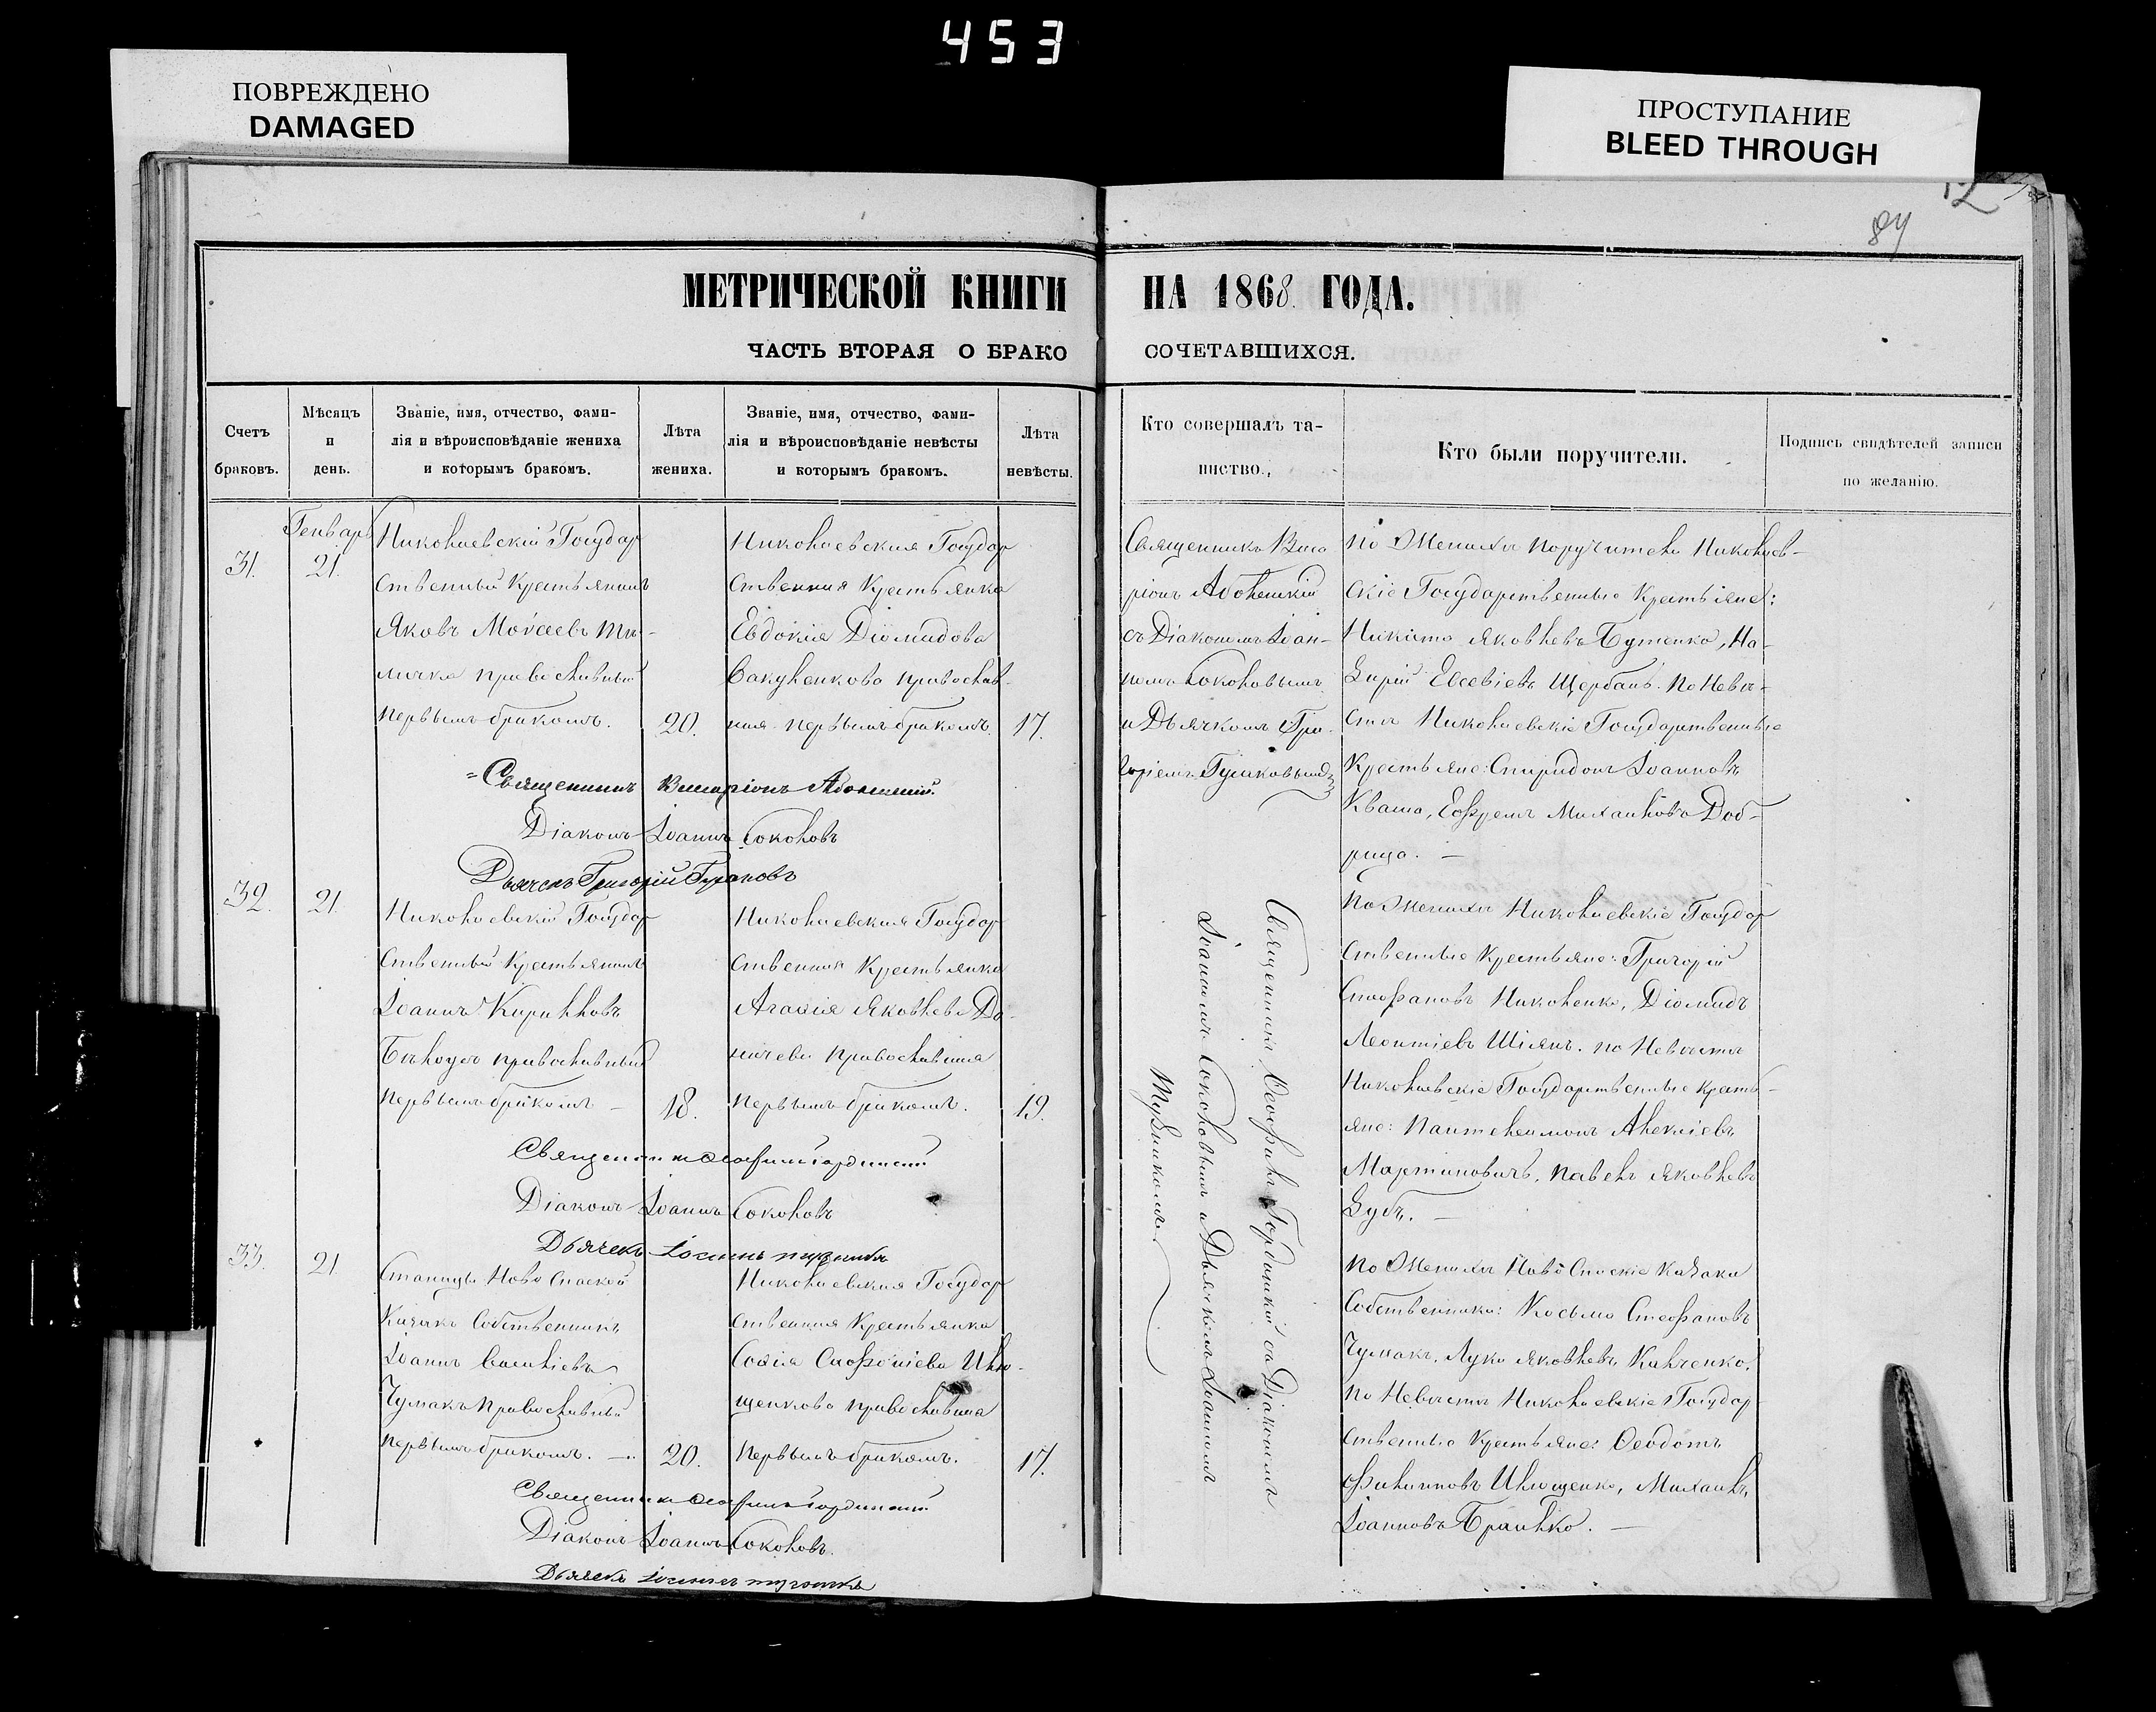 453
ПОВРЕЖДЕНО
DAMAGED
ПРОСТУПАНИЕ
BLEED THROUGH
12
84
МЕТРИЧЕСКОЙ КНИГИ НА 1868 ГОДА.
ЧАСТЬ ВТОРАЯ О БРАКОСОЧЕТАВШИХСЯ.
Счетъ
браковъ.
Мѣсяцъ
и
день.
Званіе, имя, отчество, фами-
лія и вѣроисповѣданіе жениха
и которымъ бракомъ.
Лѣта
жениха.
Званіе, имя, отчество, фами-
лія и вѣроисповѣданіе невѣсты
и которымъ бракомъ.
Лѣта
невѣсты.
Кто совершалъ та-
инство.
Кто были поручители.
Подпись свидѣтелей записи
по желанію.
31.
Генварь
21.
Николаевскій Государ
ственный Крестьянинъ
Яковъ Моѵсеевъ
православный
первымъ бракомъ.
20.
Николаевская Государ
ственная Крестьянка
Евдокія Діомидова
Вакуленкова православ-
ная первымъ бракомъ.
17.
Священникъ Виса
ріонъ Аболенскій
съ Діакономъ Іоан-
номъ Соколовымъ
и Дьячкомъ Гри
горіемъ
По Женихѣ поручители Николаев-
скіе Государственные Крестьяне:
Никита Яковлевъ Бутенко, На-
зарій Евсевіевъ Щербань. По Невѣ-
стѣ Николаевскіе Государственные
Крестьяне: Спиридонъ Іоанновъ
Кваша, Ефремъ Михаиловъ Доб-
рица. —
Священникъ Висаріонъ Аболенскій.
Діаконъ Іоаннъ Соколовъ
Дьячекъ Григорій
32.
21.
Николаевскій Государ
ственный Крестьянинъ
Іоаннъ Кирилловъ
Бѣлоусъ православный
первымъ бракомъ —
18.
Николаевская Государ
ственная Крестьянка
Агафія Яковлева До-
ничева православная
первымъ бракомъ.
19.
Священникъ Ѳеофилъ Гординскій съ Діакономъ
Іоанномъ Соколовымъ и Дьячкомъ Іоанномъ
Тузникомъ
По Женихѣ Николаевскіе Государ
ственные Крестьяне: Григорій
Стефановъ Николенко, Діомидъ
Леонтіевъ Шіянъ. по Невѣстѣ
Николаевскіе Государственные Кресть-
яне: Пантелеимонъ Алексіевъ
Мартиновичъ, Павелъ Яковлевъ
Зубъ. —
Священникъ Ѳеофилъ Гординскій
Діаконъ Іоаннъ Соколовъ
Дьячекъ Іоаннъ
33.
21.
Станицы Ново Спаской
Казакъ Собственникъ
Іоаннъ Василіевъ
Чумакъ православный
первымъ бракомъ. —
20.
Николаевская Государ
ственная Крестьянка
Софія Софоніева Илю-
щенкова православная
первымъ бракомъ.
17.
По Женихѣ Ново Спаскіе Казаки
Собственники: Косьма Стефановъ
Чумакъ, Лука Яковлевъ Калченко.
по Невѣстѣ Николаевскіе Государ-
ственные Крестьяне: Ѳеодотъ
Филипповъ Илющенко, Михаилъ
Іоанновъ Браилко. —
Священникъ Ѳеофилъ Гординскій
Діаконъ Іоаннъ Соколовъ.
Дьячекъ Іоаннъ